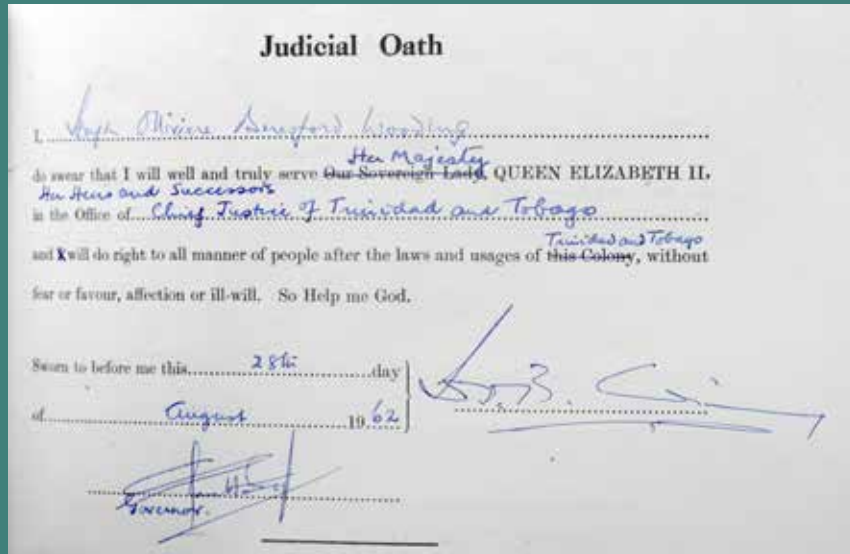 Judicial Oath
I, Hugh Olliviere Beresford Wooding
Her Majesty
do swear that I will well and truly serve Our Sovereign Lady, QUEEN ELIZABETH II,
Her Heirs and Successors
in the Office of Chief Justice of Trinidad and Tobago
Trinidad and Tobago
and I will do right to all manner of people after the laws and usages of this Colony, without
fear or favour, affection or ill-will. So Help me God.
Sworn to before me this 28th day
of August 1962
Governor.